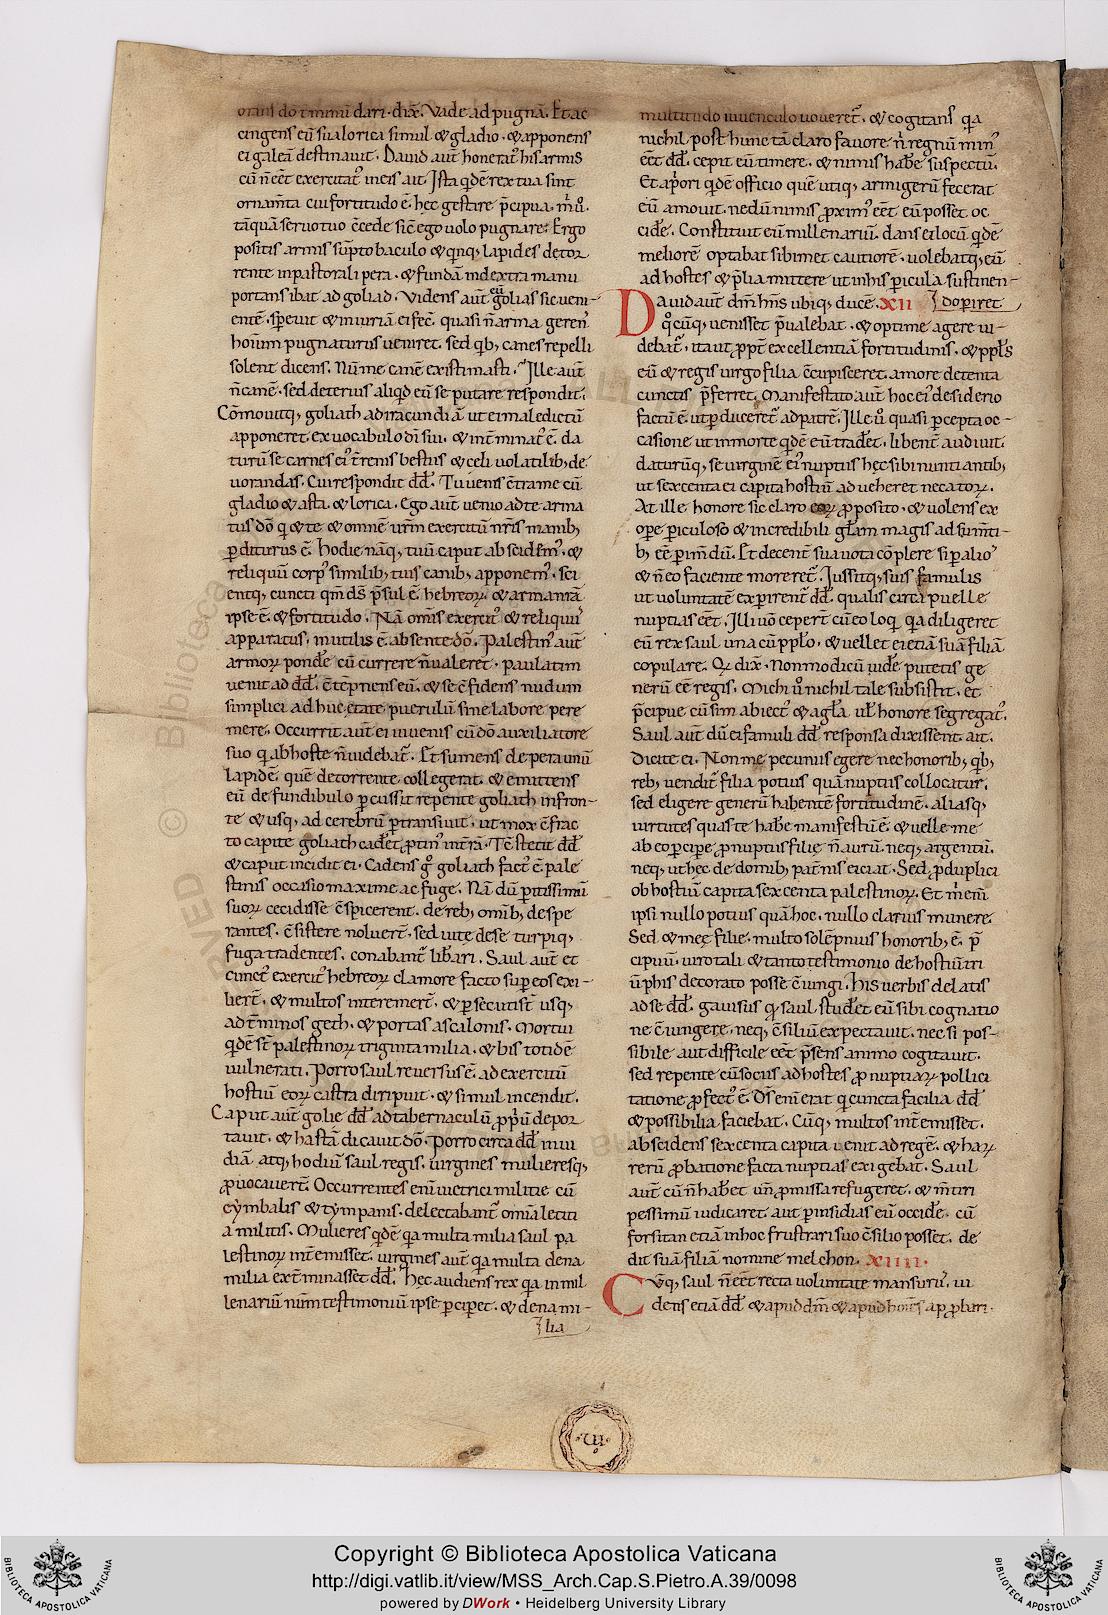 orans do t̄minū dari. dix̄. Vade ad pugnā. Et ac
cingens eū sua lorica simul & gladio. & apponens
ei galeā destinauit. Dauid aut̄ honerat᷒ his armis
cū n̄ eēt exercitat᷒ in eis ait. Ista qdē rex tua sint
ornam̄ta cui fortitudo ē. hęc gestare p̄cipua. m̄ u͛o.
tāquā seruo tuo c̄cede sic̄ ego uolo pugnare. Ergo
positis armis sūpto baculo & qnq; lapides de tor
rente in pastorali pera. & fundā in dextra manu
portans ibat ad goliad. Videns aut̄ eū golias sic ueni-
entē. sp̄euit & iniuriā ei fec̄. quasi n̄ arma geren᷒
hoīum pugnaturus ueniret. sed qb; canes repelli
solent dicens. Nū me canē existimasti. Ille aut̄
n̄ canē. sed deterius aliqd eū se putare respondit.
Cōmouitq; goliath ad iracundiā ut ei maledictū
apponeret ex uocabulo dī sui. & int̄minat᷒ ē. da
turū se carnes ei᷒ t̄renis bestiis & celi uolatilib; de
uorandas. Cui respondit dd̄. Tu uenis c̄tra me cū
gladio & asta. & lorica. Ego aut̄ uenio ad te arma
tus dō q & te & omnē ur̄m exercitū nr̄is manib;
pditurus ē. hodie nāq; tuū caput abscidem᷒. &
reliquū corp᷒ similib; tuis canib; apponem᷒. sci
entq; cuncti qm̄ ds̄ p̄sul ē. hebreoꝝ. & arma n̄rā
ipse ē. & fortitudo. Nā omīs exercit᷒ & reliquus
apparatus. inutilis ē. absente dō. Palestin᷒ aut̄
armoꝝ pondē cū currere n̄ ualeret. paulatim
uenit ad dd̄. c̄tēpnens eū. & se c̄fidens nudum
simplici adhuc ętate puerulū sine labore pere
mere. Occurrit aut̄ ei iuuenis cū dō auxiliatore
suo q ab hoste n̄ uidebat᷒. Et sumens de pera unū
lapidē. quē de torrente collegerat. & emittens
eū de fundibulo pcussit repente goliath in fron-
te & usq; ad cerebrū ptransiuit. ut mox c̄frac
to capite goliath cadēt ptin᷒ int̄rā. Tc̄ stetit dd̄
& caput incidit ei. Cadens g͛ goliath fact᷒ ē pale
stinis occasio maxime ac fuge. Nā dū p̄tissimū
suoꝝ cecidisse c̄spicerent. de reb; omīb; despe
rantes. c̄sistere noluert̄. sed uitę dese turpiq;
fuga tradentes. conabant᷒ libari. Saul aut̄ et
cunct᷒ exercit᷒ hebreoꝝ clamore facto sup eos exi-
liert̄. & multos interemert̄. & psecuti st̄ usq;
ad t̄minos geth. & portas ascalonis. Mortui
qdē st̄ palestinoꝝ triginta milia. & bis totidē
uulnerati. Porro saul reuersus ē. ad exercitū
hostiū eoꝝ castra diripuit. & simul incendit.
Caput aut̄ golie dd̄ ad tabernaculū ppriū depor
tauit. & hastā dicauit dō. Porro circa dd̄ inui
diā atq; hodiū saul regis. uirgines mulieresq;
puocauert̄. Occurrentes enī uictrici militie cū
cymbalis & tympanis. delectabant᷒ omīa letiti
a militis. Mulieres qdē qa multa milia saul pa
lestinoꝝ int̄emisset. uirgines aut̄ qa multa dena
milia ext̄minasset dd̄. hęc audiens rex qa in mil
lenariū num̄ testimoniū ipse pciperet. & dena mi-
lia
multitudo iuuenculo uoueret᷒. & cogitans qa
nichil post hunc tā claro fauore n̄ regnū min᷒
eēt dd̄. cepit eū timere. & nimis habe suspectū.
Et apriori qdē officio quē utiq; armigerū fecerat
eū amouit. ne dū nimis pxim᷒ eēt eū posset oc
cidē. Constituit eū millenariū. dans ei locū qdē
meliorē optabat sibimet cautiorē. uolebatq; eū
ad hostes & plia mittere ut in his picula sustinen-
do piret
Dauid aut̄ dm̄ hn̄s ubiq; ducē. XII
qcūq; uenisset p̄ualebat. & optime agere ui-
debat᷒. ita ut ppt̄ excellentiā fortitudinis. & ppl̄s
eū & regis uirgo filia c̄cupisceret. amore detenta
cunctis p̄ferret. Manifestato aut̄ hoc ei᷒ desiderio
factū ē. ut pduceret᷒ ad patrē. Ille u͛o quasi pcepta oc-
casione ut in morte qdē eū tradet. libent̄ audiuit.
daturūq; se uirginē ei᷒ nuptiis hęc sibi nuntiantib;
ut sexcenta ei capita hostiū adueheret necatoꝝ.
At ille honore sic claro eoꝝ pposito. & uolens ex
ope piculoso & incredibili gl̄am magis adsum̄ti-
b; eē pim̄dū. Et decent̄ sua uota cōplere si p alio᷒
& n̄ eo faciente moreret᷒. Iussitq; suis famulis
ut uoluntatē expirent᷒ dd̄. qualis circa puelle
nuptias eēt. Illi u͛o cepert̄ cū eo loq. qa diligeret
eū rex saul una cū pplo. & uellet ei etiā suā filiā
copulare. Qi dix̄. Non modicū iudē putetis ge
nerū eē regis. Michi u͛o nichil tale subsistit. et
p̄cipue cū sim abiect᷒ & agl̄a ul̄ honore segregat᷒.
Saul aut̄ dū ei famuli dd̄ responsa dixissent ait.
Dicite ei. Non me pecuniis egere nec honorib; qb;
reb; uendit᷒ filia potius quā nuptiis collocatur.
sed eligere generū habentē fortitudinē. aliasq;
uirtutes quas te habe manifestū ē. & uelle me
ab eo pcipe p nuptiis filię n̄ aurū. neq; argentū.
neq; ut hęc de domib; pat̄nis eiciat. Sed p duplici
ob hostiū capita sexcenta palestinoꝝ. Et m̄ enī
ipsi nullo potius quā hoc. nullo clarius munere.
Sed & meę filie. multo solēpnius honorib; ē. p̄
cipuū. uiro tali & tanto testimonio de hostiū tri
ūphis decorato posse c̄iungi. His uerbis delatis
ad se dd̄. gauisus qi saul studet eū sibi cognatio
ne c̄iungere. neq; c̄siliū expectauit. nec si pos-
sibile aut difficile eēt p̄sens animo cogitauit.
sed repente cū sociis ad hostes p nuptiaꝝ pollici
tatione pfect᷒ ē. Ds̄ enī erat q cuncta facilia dd̄
& possibilia faciebat. Cūq; multos int̄emisset.
abscidens sexcenta capita uenit ad regē. & haꝝ
rerū pbatione facta nuptias exigebat. Saul
aut̄ cū n̄ habet un̄ pmissa refugeret. & m̄tiri
pessimū iudicaret aut p insidias eū occidē. cū
forsitan etiā in hoc frustrari suo c̄silio posset. de
dit suā filiā nomine melchon. XIIII.
Cūq; saul n̄ eēt recta uoluntate mansurus. ui
dens etiā dd̄ & apud dm̄ & apud hoīes ap pluri.
Copyright © Biblioteca Apostolica Vaticana
http://digi.vatlib.it/view/MSS_Arch.Cap.S.Pietro.A.39/0098
powered by DWork • Heidelberg University Library
BIBLIOTECA APOSTOLICA VATICANA
BIBLIOTECA APOSTOLICA VATICANA